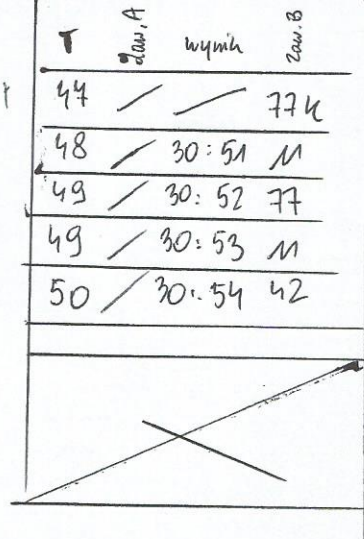 T zaw. A wynik zaw. B
47 / / 77k
48 / 30:51 11
49 / 30:52 77
49 / 30:53 11
50 / 30:54 42